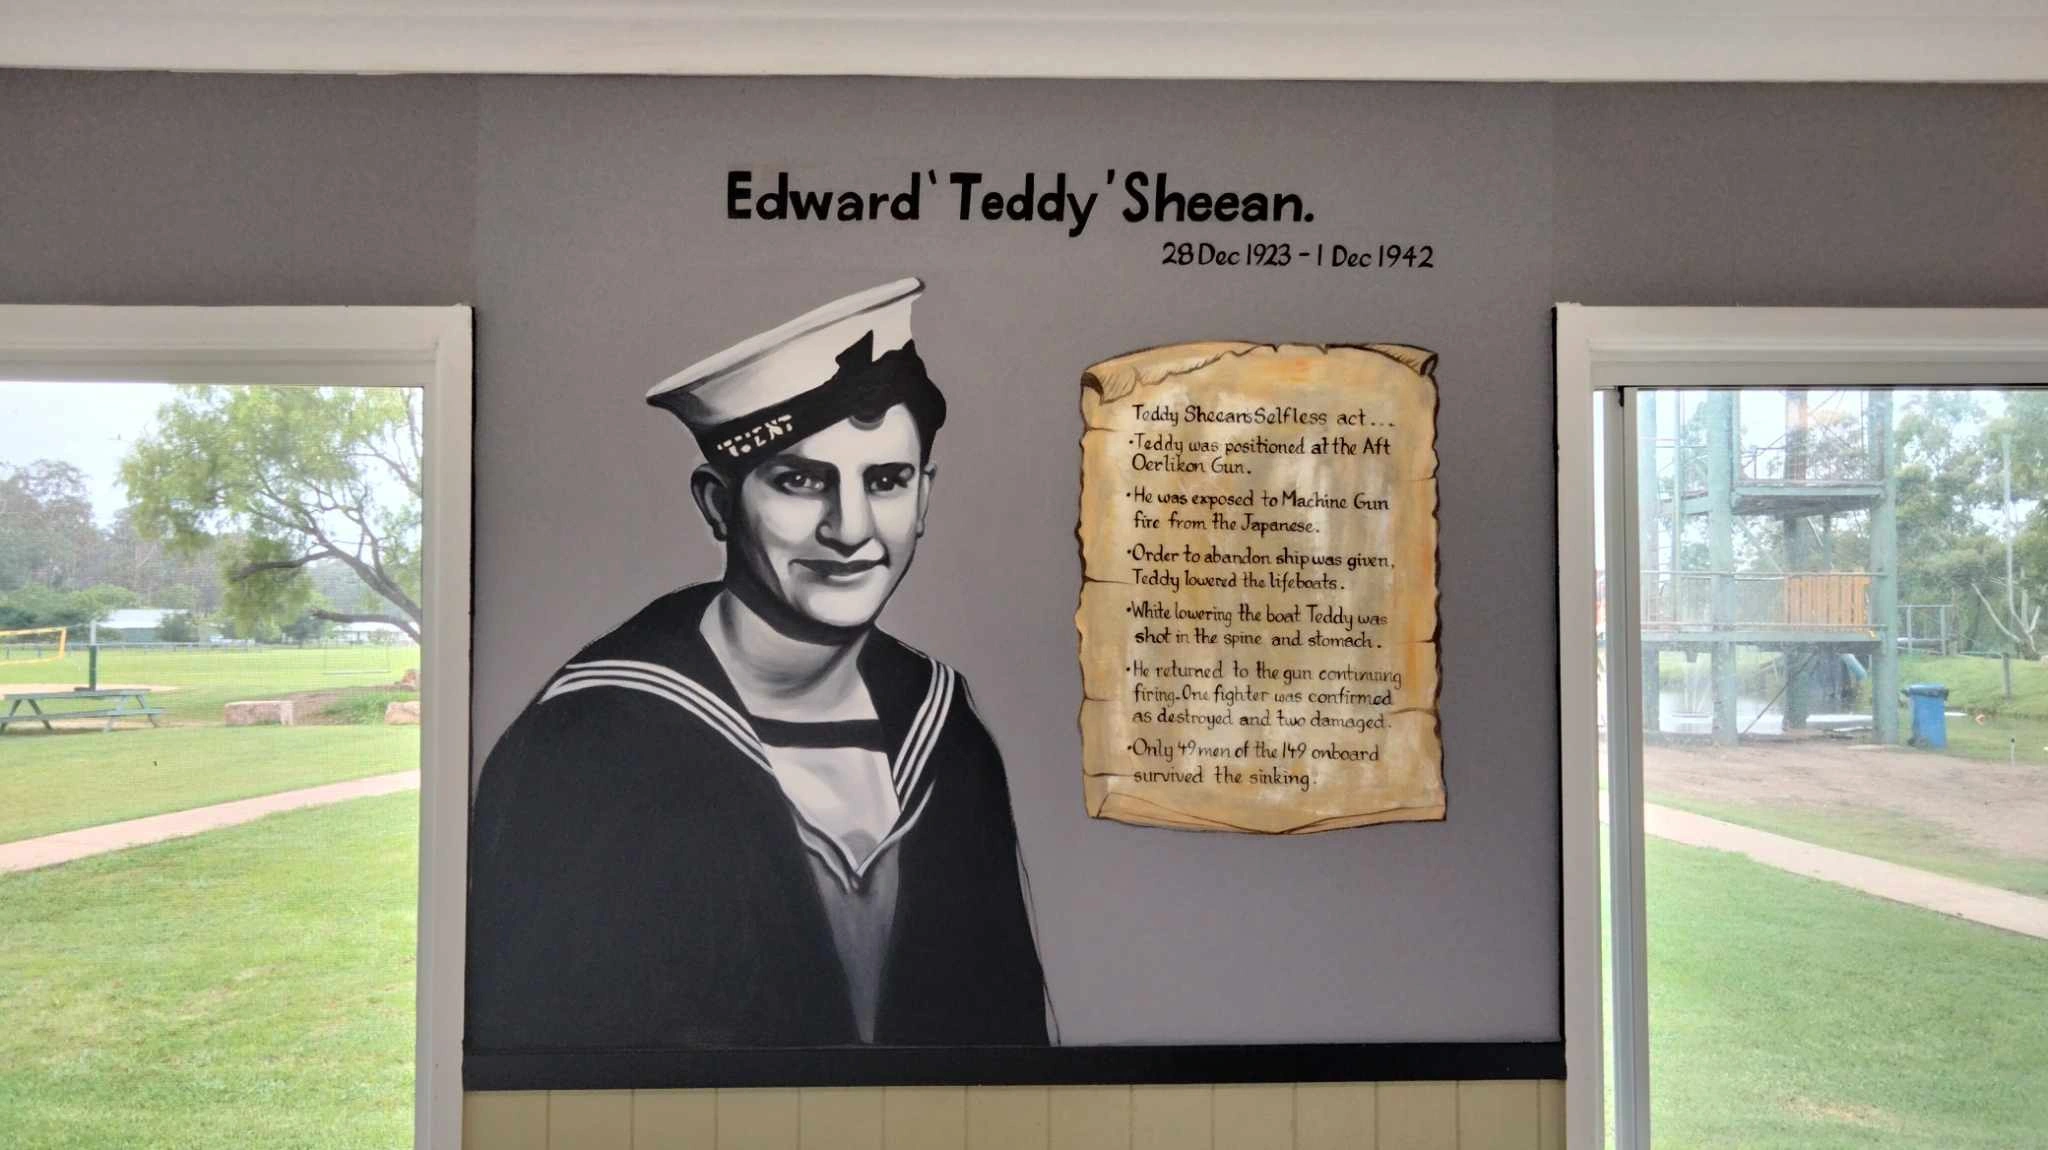 Edward 'Teddy' Sheean.
28 Dec 1923 - 1 Dec 1942
Teddy Sheean's Selfless act...
•Teddy was positioned at the Aft
Oerlikon Gun.
•He was exposed to Machine Gun
fire from the Japanese.
•Order to abandon ship was given,
Teddy lowered the lifeboats.
•White lowering the boat Teddy was
shot in the spine and stomach.
•He returned to the gun continuing
firing. One fighter was confirmed
as destroyed and two damaged.
•Only 49 men of the 149 onboard
survived the sinking.